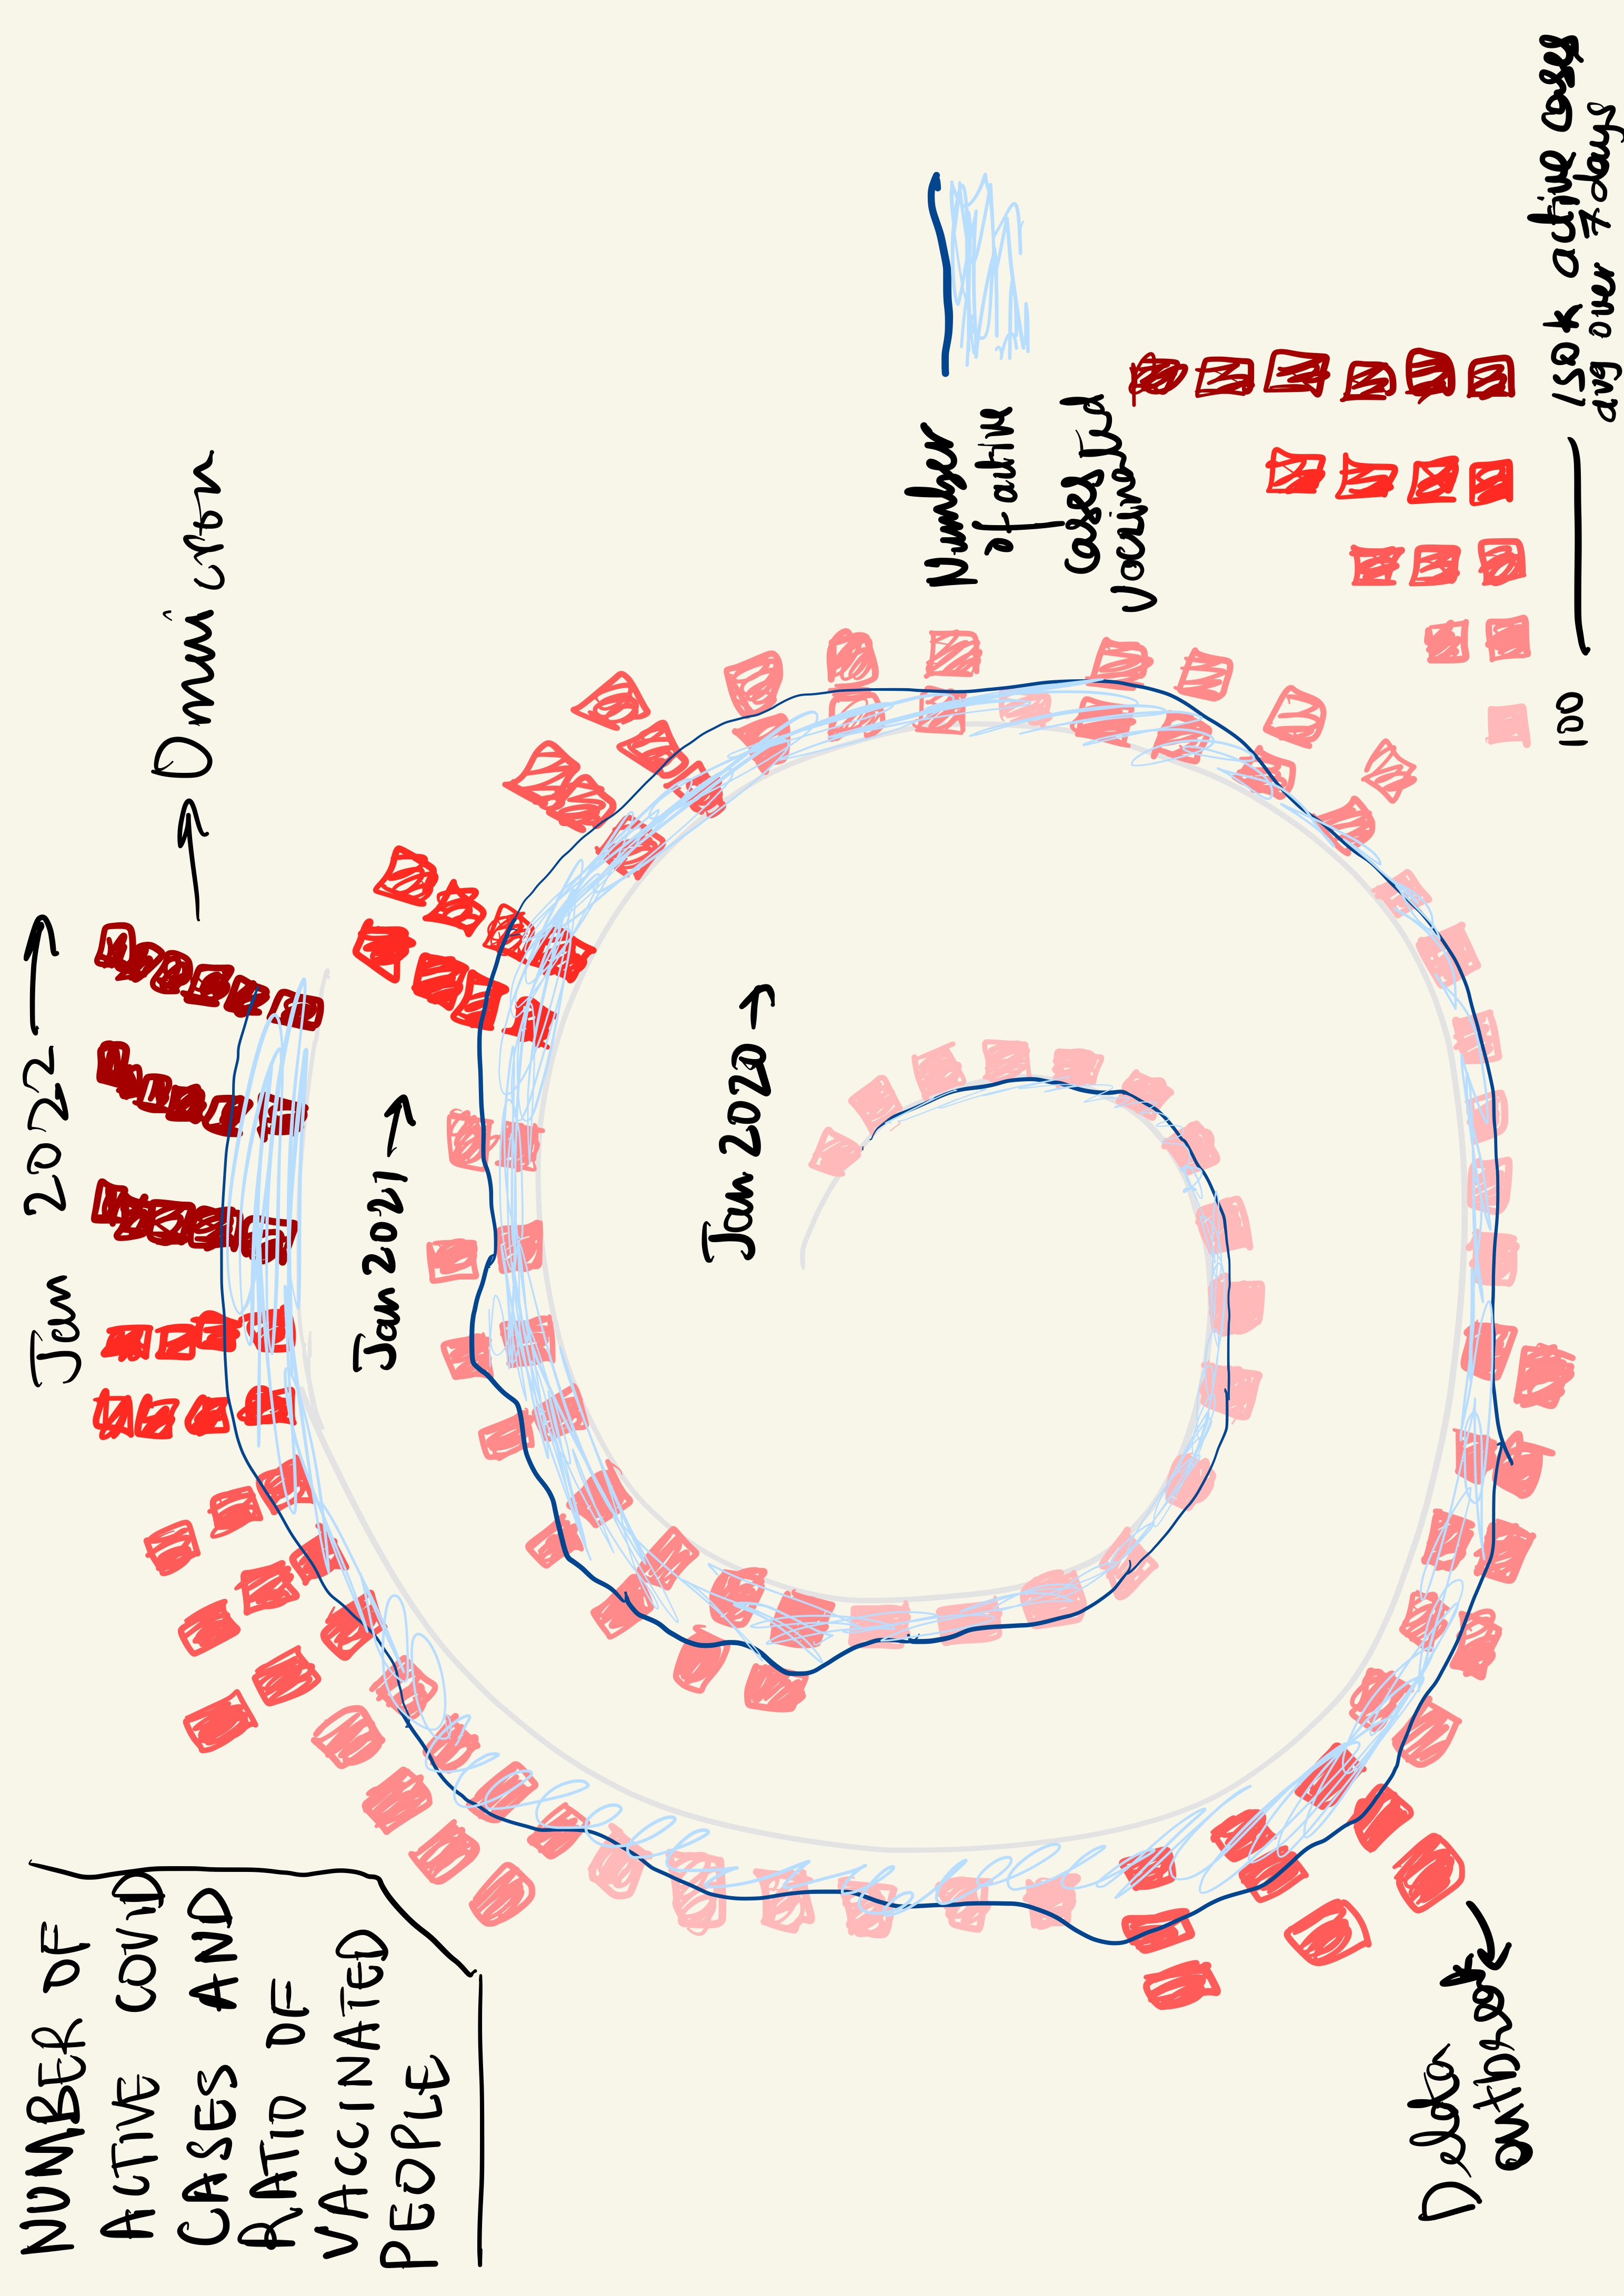 NUMBER OF
ACTIVE COVID
CASES AND
RATIO OF
VACCINATED
PEOPLE
Jan 2022 →
→ Omicron
Jan 2021 →
Jan 2020 →
Number
of active
cases
Vaccinated
Delta
outbreak
100
150k active cases
avg over 7 days